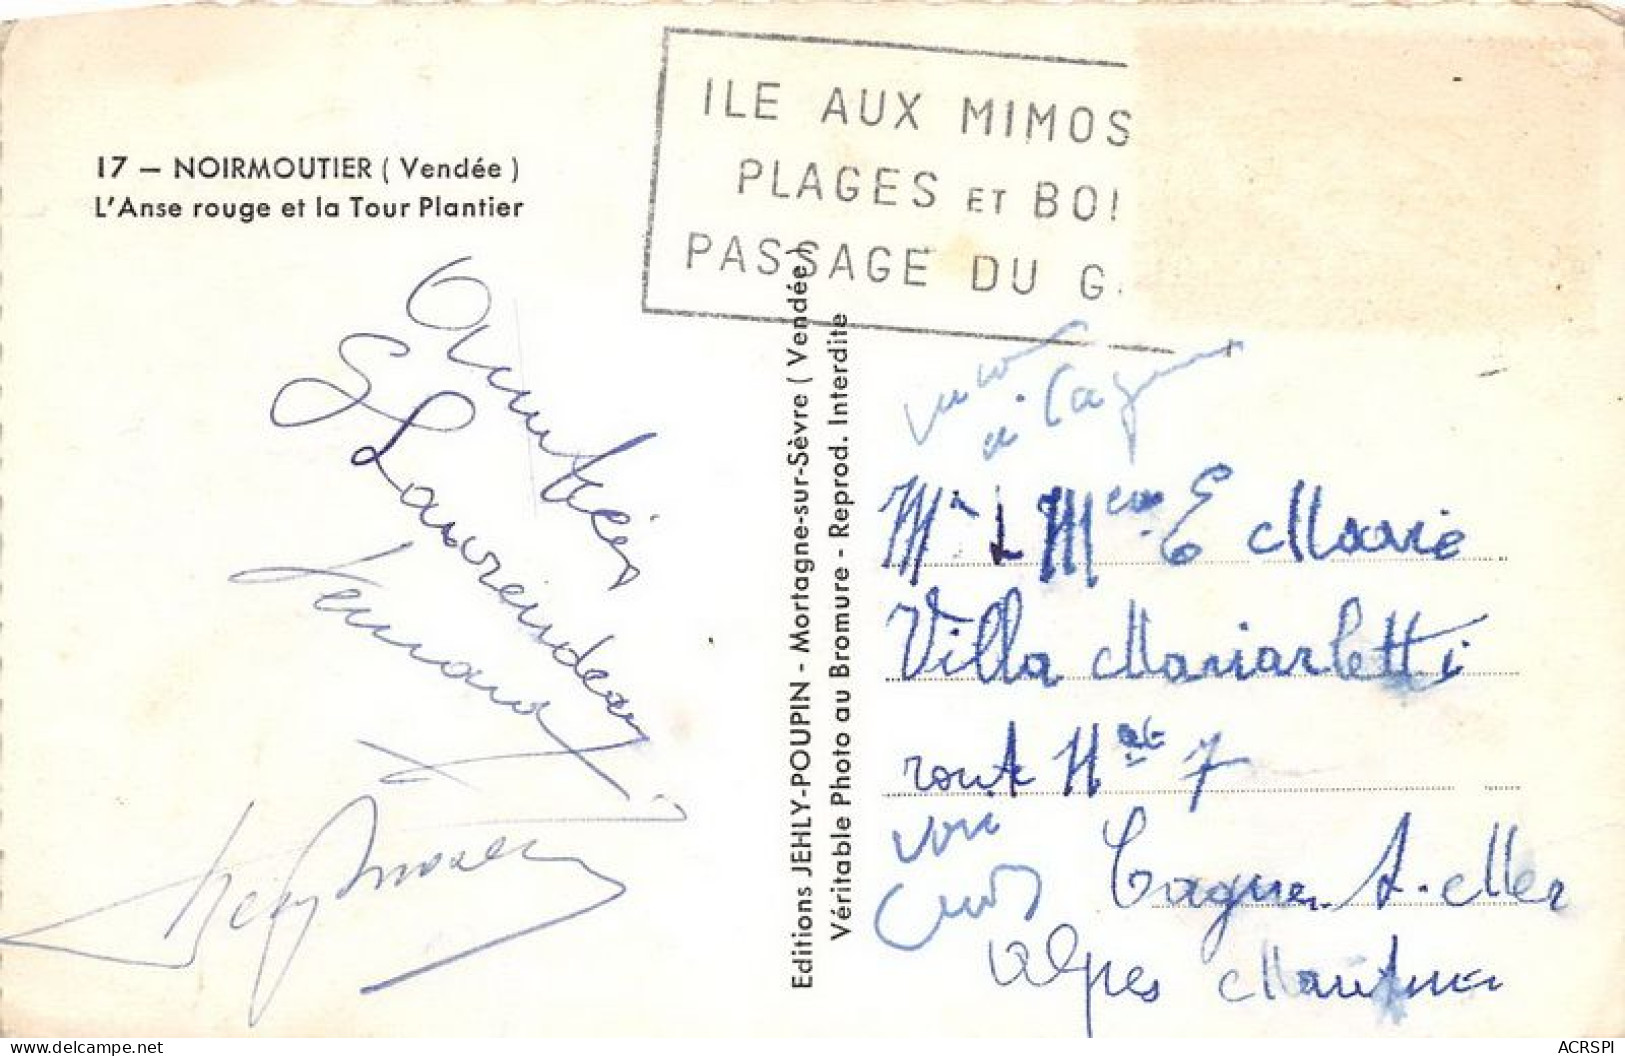 17 — NOIRMOUTIER ( Vendée )
L'Anse rouge et la Tour Plantier
ILE AUX MIMOS
PLAGES ET BOI
PASSAGE DU G.
Amitiés
Editions JEHLY-POUPIN - Mortagne-sur-Sèvre ( Vendée )
Véritable Photo au Bromure - Reprod. Interdite
à Cagnes
Mr & Mme E Marie
Villa Mariarletti
route Nale 7
voir
Cagnes s. Mer
Alpes Maritimes
ACRSPI